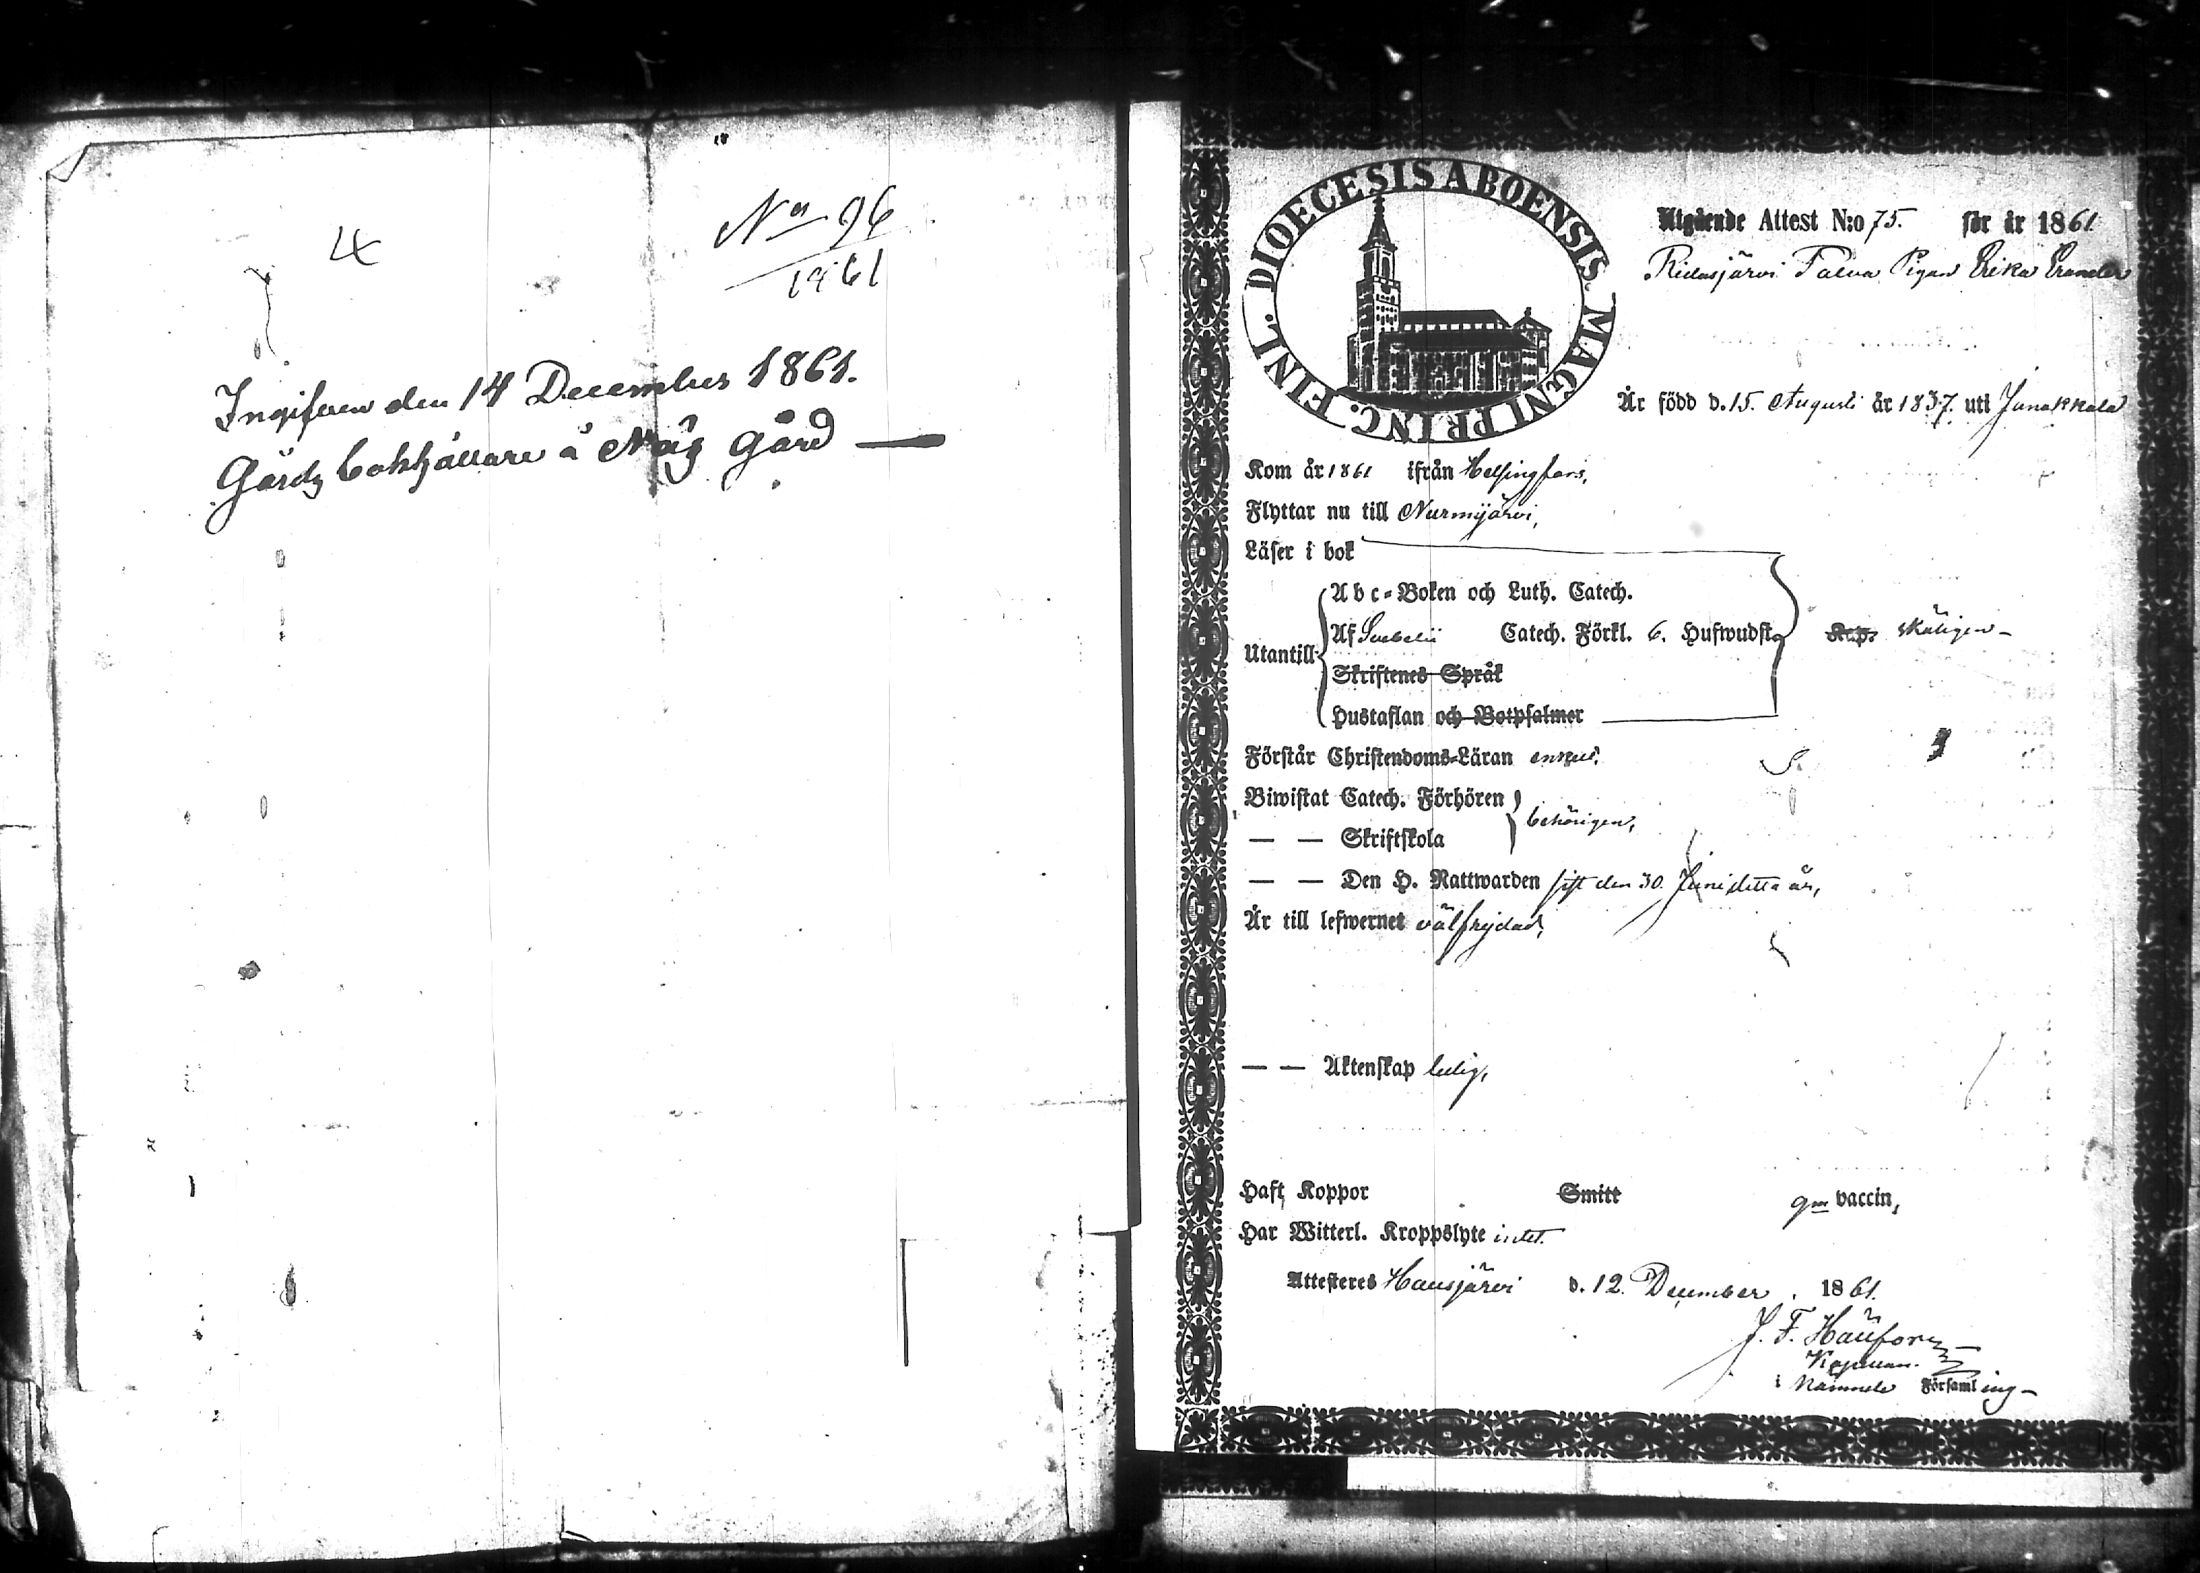 4
No 96
1861
Ingifven den 14 December 1861.
Gårds bokhållare å Näs Gård —
DIOECESIS ABOENSIS. MAGNI PRINC. FINL.
Utgående Attest N:o 75. för år 1861
Ridasjärvi Pigan Erika
Är född d. 15. Augusti år 1837. uti Janakkala
Kom år 1861 ifrån Helsingfors,
Flyttar nu till Nurmijärvi,
Läser i bok
Utantill
Abc-Boken och Luth. Catech.
Af Svebelii Catech. Förkl. 6. Hufwudst.
skäligen —
Skriftenes Språk
Hustaflan och Botpsalmer
Förstår Christendoms-Läran enkelt.
Biwistat Catech. Förhören
behörigen,
— — Skriftskola
— — Den H. Nattwarden sist den 30. Juni detta år,
Är till lefwernet välfrejdad,
— — Äktenskap ledig,
Haft Koppor Smitt gm vaccin,
Har Witterl. Kroppslyte intet.
Attesteres Hausjärvi d. 12. December. 1861.
J. F.
Kapellan.
i nämnde Församling —